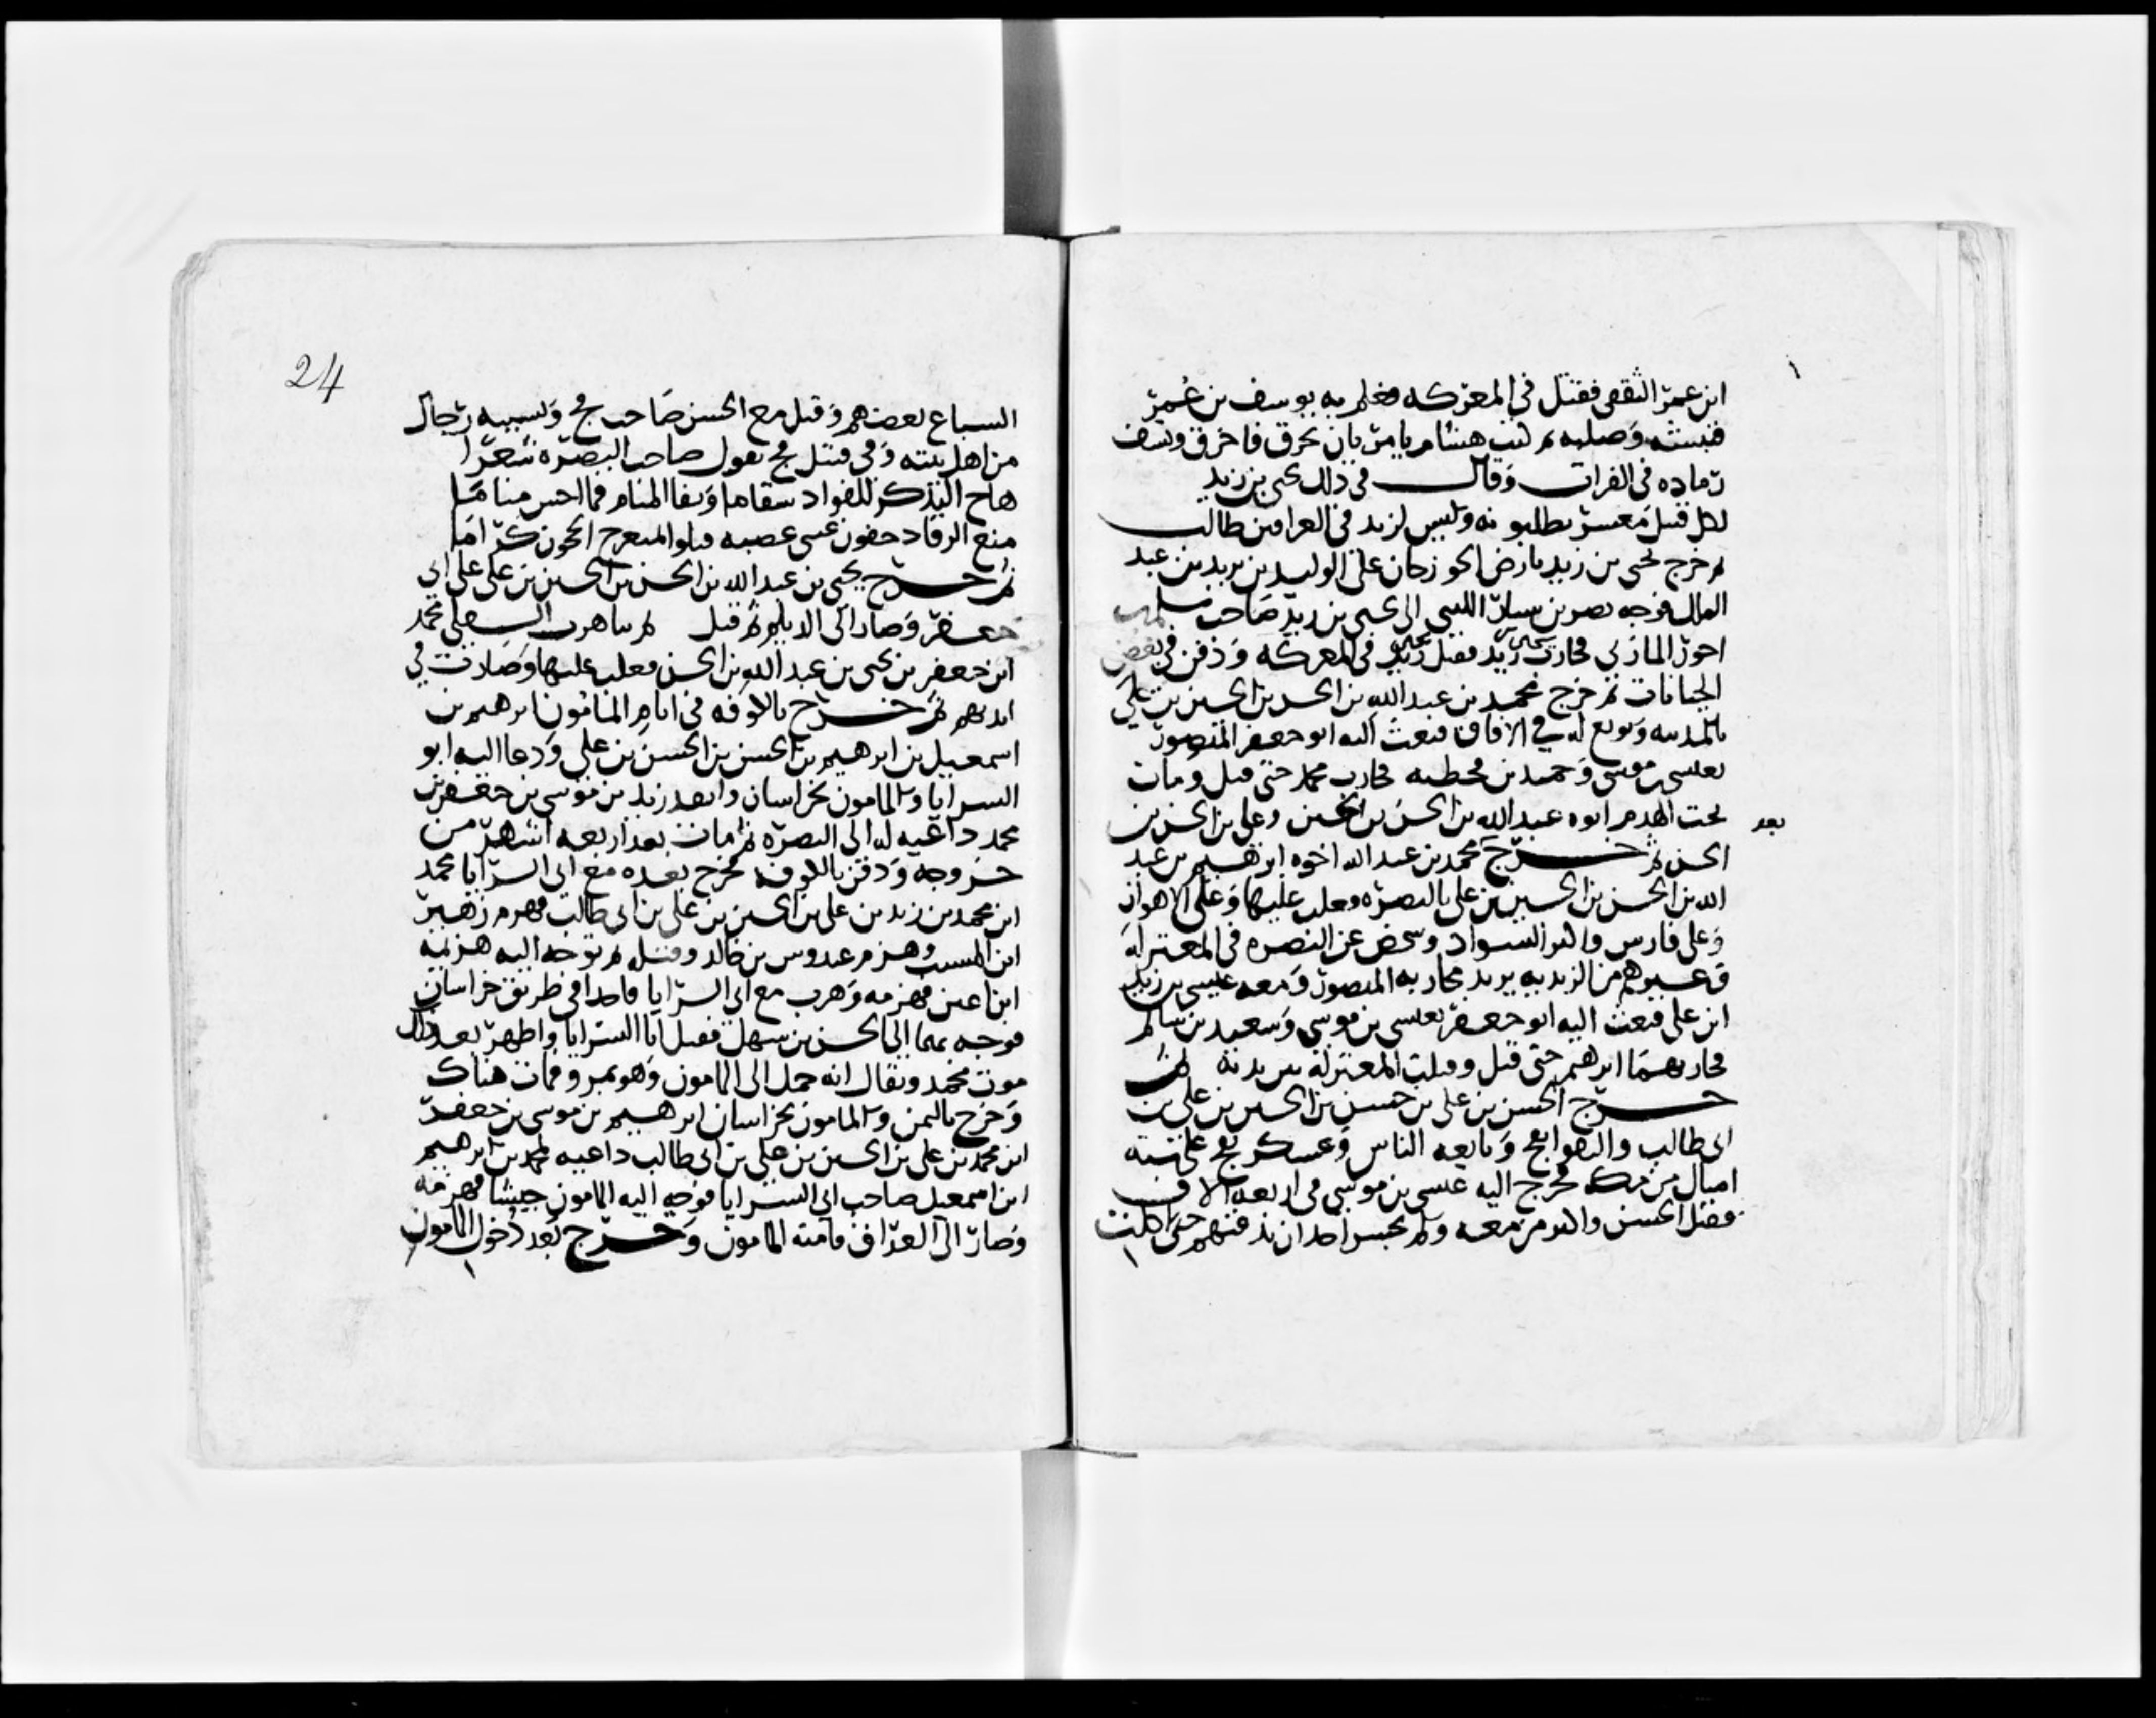 ابن عمر الثقفى فقتل في المعركه فعلم به يوسف بن عُمر
فنبشه وَصلبه ثم كتب هشام يامر بان يحرق فاحرق ونسف
رماده فى الفرات وَقال فى ذلك يحيى بن زيد
لكل قتيل مَعشر يطلبونه وليس لزيد فى العراقين طالب
ثم خرج يحيى بن زيد بارض الجوزجان على الوليد بن يزيد بن عبد
الملك فوجه نصر بن سيار الليثى الى يحيى بن زيد صَاحب سلم بن
احوز المازني فحارب يحيى بن زيد فقتل في المعركه وَدفن في بعض
الجبانات ثم خرج محمد بن عبد الله بن الحسن بن الحسين بن علي
بالمدينه وَبويع له في الافاق فبعث اليه ابو جعفر المنصور
بعيسى بن موسى وَحميد بن قحطبه فحارب محمد حتى قتل ومات
تحت الهدم ابوه عبد الله بن الحسن بن الحسن وعلى بن الحسن بن
بعد
الحسن ثم خرج محمد بن عبد الله اخوه ابرهيم بن عبد
الله بن الحسن بن الحسين بن على بالبصره وغلب عليها وَعلى الاهواز
وَعلى فارس واكثر السواد وشخص عن البصره في المعتزله
وغيرهم من الزيديه يريد محاربه المنصور وَمعه عيسى بن زيد
ابن على فبعث اليه ابو جعفر بعيسى بن موسى وَسعيد بن سالم
فحاربهمَا ابرهيم حتى قتل وقتلت المعتزله بين يديه ثم
خرج الحسن بن على بن حسن بن الحسين بن على بن
ابى طالب وَبايعه الناس وَعسكر بفخ على سته
اميال من مكه فخرج اليه عيسى بن موسى في اربعه الاف
فقتل الحسن واكثر من معه وَلم يجسر احد ان يدفنهم حتى اكلت
24
السباع بعضهم وَقتل مع الحسن صَاحب فخ وَبسببه رجال
من اهل بيته وَفى قتيل فخ يقول صاحب البصره شعرا
هاج التذكر للفواد سقاما وَنفا المنام فما احس مناما
منع الرقاد جفون عينى عصبه قتلوا بمنعرج الحجون كراما
ثم خرج يحيى بن عبد الله بن الحسن بن الحسين بن على على ابى
جعفر وَصار الى الديلم ثم قتل ثم بتاهرت السفلى محمد
ابن جعفر بن يحيى بن عبد الله بن الحسن فغلب عليها وَصارت في
ايديهم ثم خرج بالكوفه في ايام المامون ابرهيم بن
اسمعيل بن ابرهيم بن الحسن بن الحسن بن على وَدعا اليه ابو
السرايا وَالمامون بخراسان وانفذ زيد بن موسى بن جعفر بن
محمد داعيه له الى البصره ثم مات بعد اربعه اشهر من
خروجه وَدفن بالكوفه فخرج بعده مع ابى السرايا محمد
ابن محمد بن زيد بن على بن الحسين بن على بن ابى طالب فهزم زهير
ابن المسيب وهزم عبدوس بن خالد وقتله ثم توجه اليه هزيمه
ابن اعين فهزمه وَهرب مع ابى السرايا فاخذا في طريق خراسان
فوجه بهما الى الحسن بن سهل فقتل ابا السرايا واظهر بعد ذلك
موت محمد ويقال انه حمل الى المامون وَهو بمرو فمات هناك
وَخرج باليمن وَالمامون بخراسان ابرهيم بن موسى بن جعفر
ابن محمد بن على بن الحسين بن على بن ابى طالب داعيه لمحمد بن ابرهيم
ابن اسمعيل صاحب ابى السرايا فوجه اليه المامون جيشا فهزمه
وَصار الى العراق فامنه المامون وَخرج بعد دُخول المامون